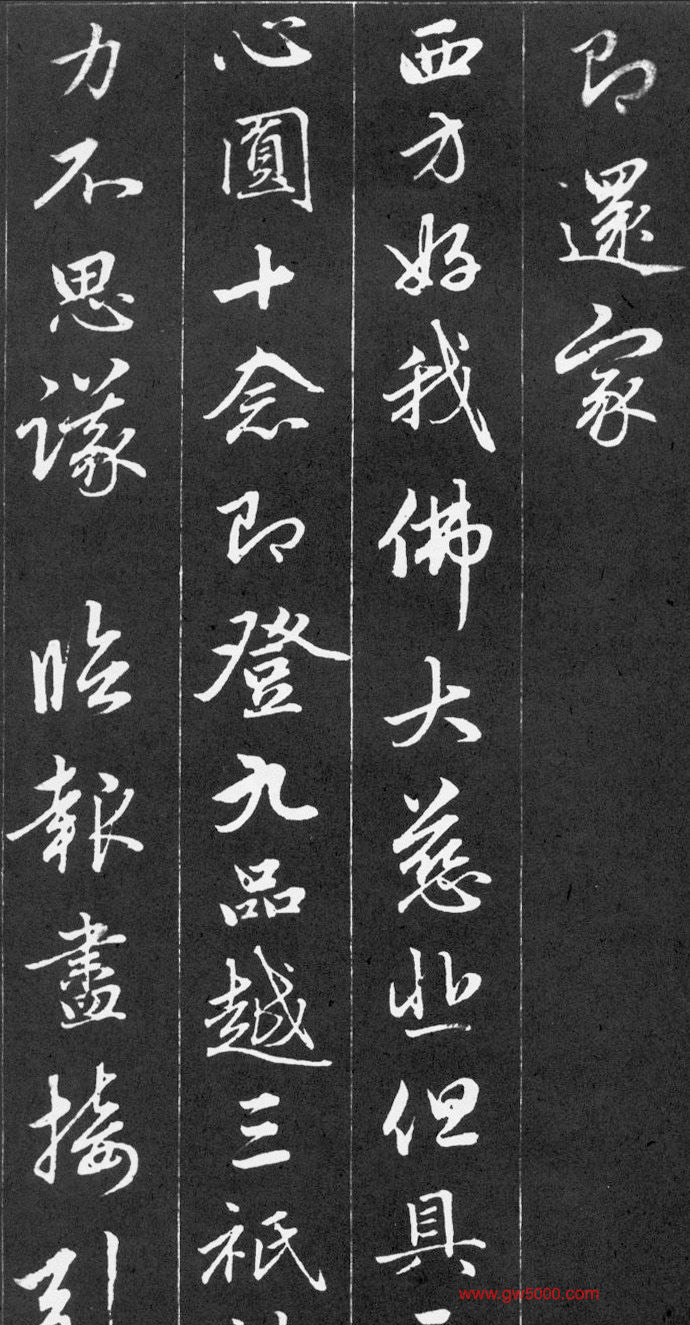 即還家
西方好我佛大慈悲但具
心圓十念即登九品越三祇
力不思議 臨報盡接引
www.gw5000.com